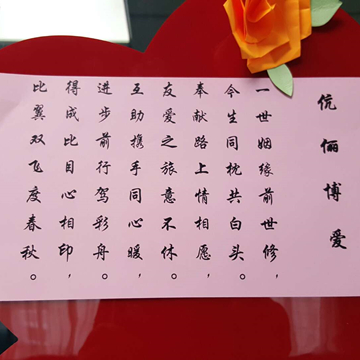 伉俪博爱
一世姻缘前世修，
今生同枕共白头。
奉献路上情相愿，
友爱之旅意不休。
互助携手同心暖，
进步前行驾彩舟。
得成比目心相印，
比翼双飞度春秋。